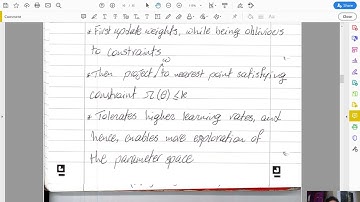 Comment
* First update weights, while being oblivious
to constraints
* Then project w to nearest point satisfying
constraint Ω(θ) ≤ k
* Tolerates higher learning rates, and
hence, enables more exploration of
the parameter space